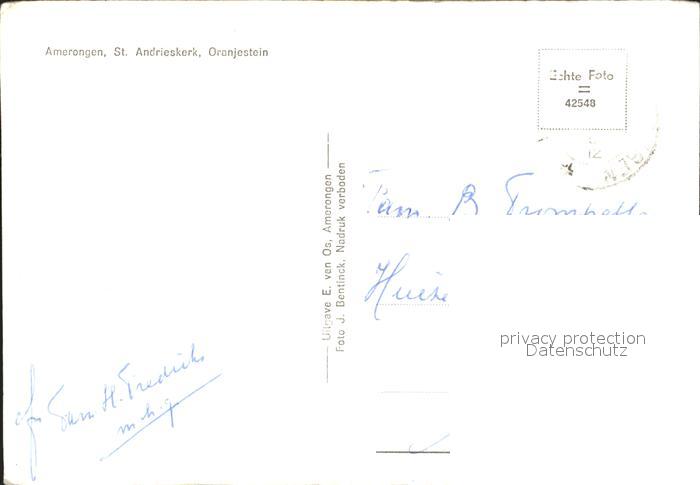 Amerongen, St. Andrieskerk, Oranjestein
Echte Foto
42548
12
Uitgave E. van Os, Amerongen
Foto J. Bentinck. Nadruk verboden
Fam B
privacy protection
Datenschutz
Fam H. Fredriks